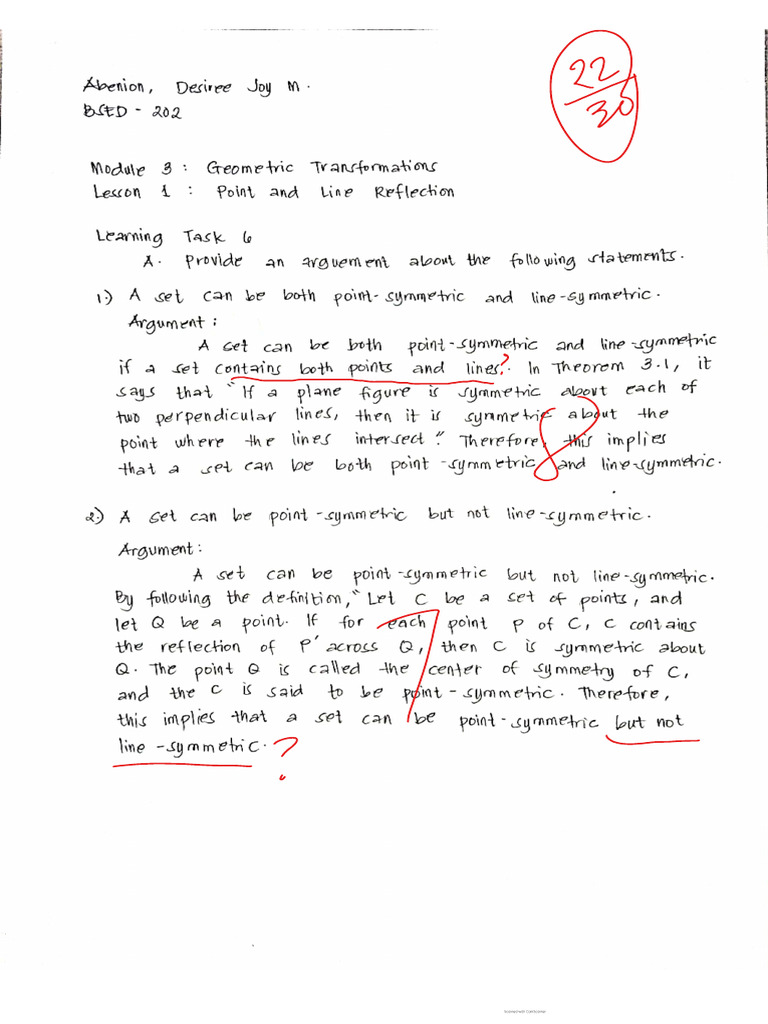 22
30
Abenion, Desiree Joy M.
BSED - 202
Module 3 : Geometric Transformations
Lesson 1 : Point and Line Reflection
Learning Task 6
A. Provide an arguement about the following statements.
1.) A set can be both point-symmetric and line-symmetric.
Argument :
A set can be both point-symmetric and line-symmetric
if a set contains both points and lines?. In Theorem 3.1, it
says that "If a plane figure is symmetric about each of
two perpendicular lines, then it is symmetric about the
point where the lines intersect". Therefore, this implies
that a set can be both point-symmetric and line-symmetric.
8
2.) A set can be point-symmetric but not line-symmetric.
Argument :
A set can be point-symmetric but not line-symmetric.
By following the definition, "Let C be a set of points, and
let Q be a point. If for each point P of C, C contains
the reflection of P' across Q, then C is symmetric about
Q. The point Q is called the center of symmetry of C,
and the C is said to be point-symmetric. Therefore,
this implies that a set can be point-symmetric but not
line-symmetric. ?
7
Scanned with CamScanner